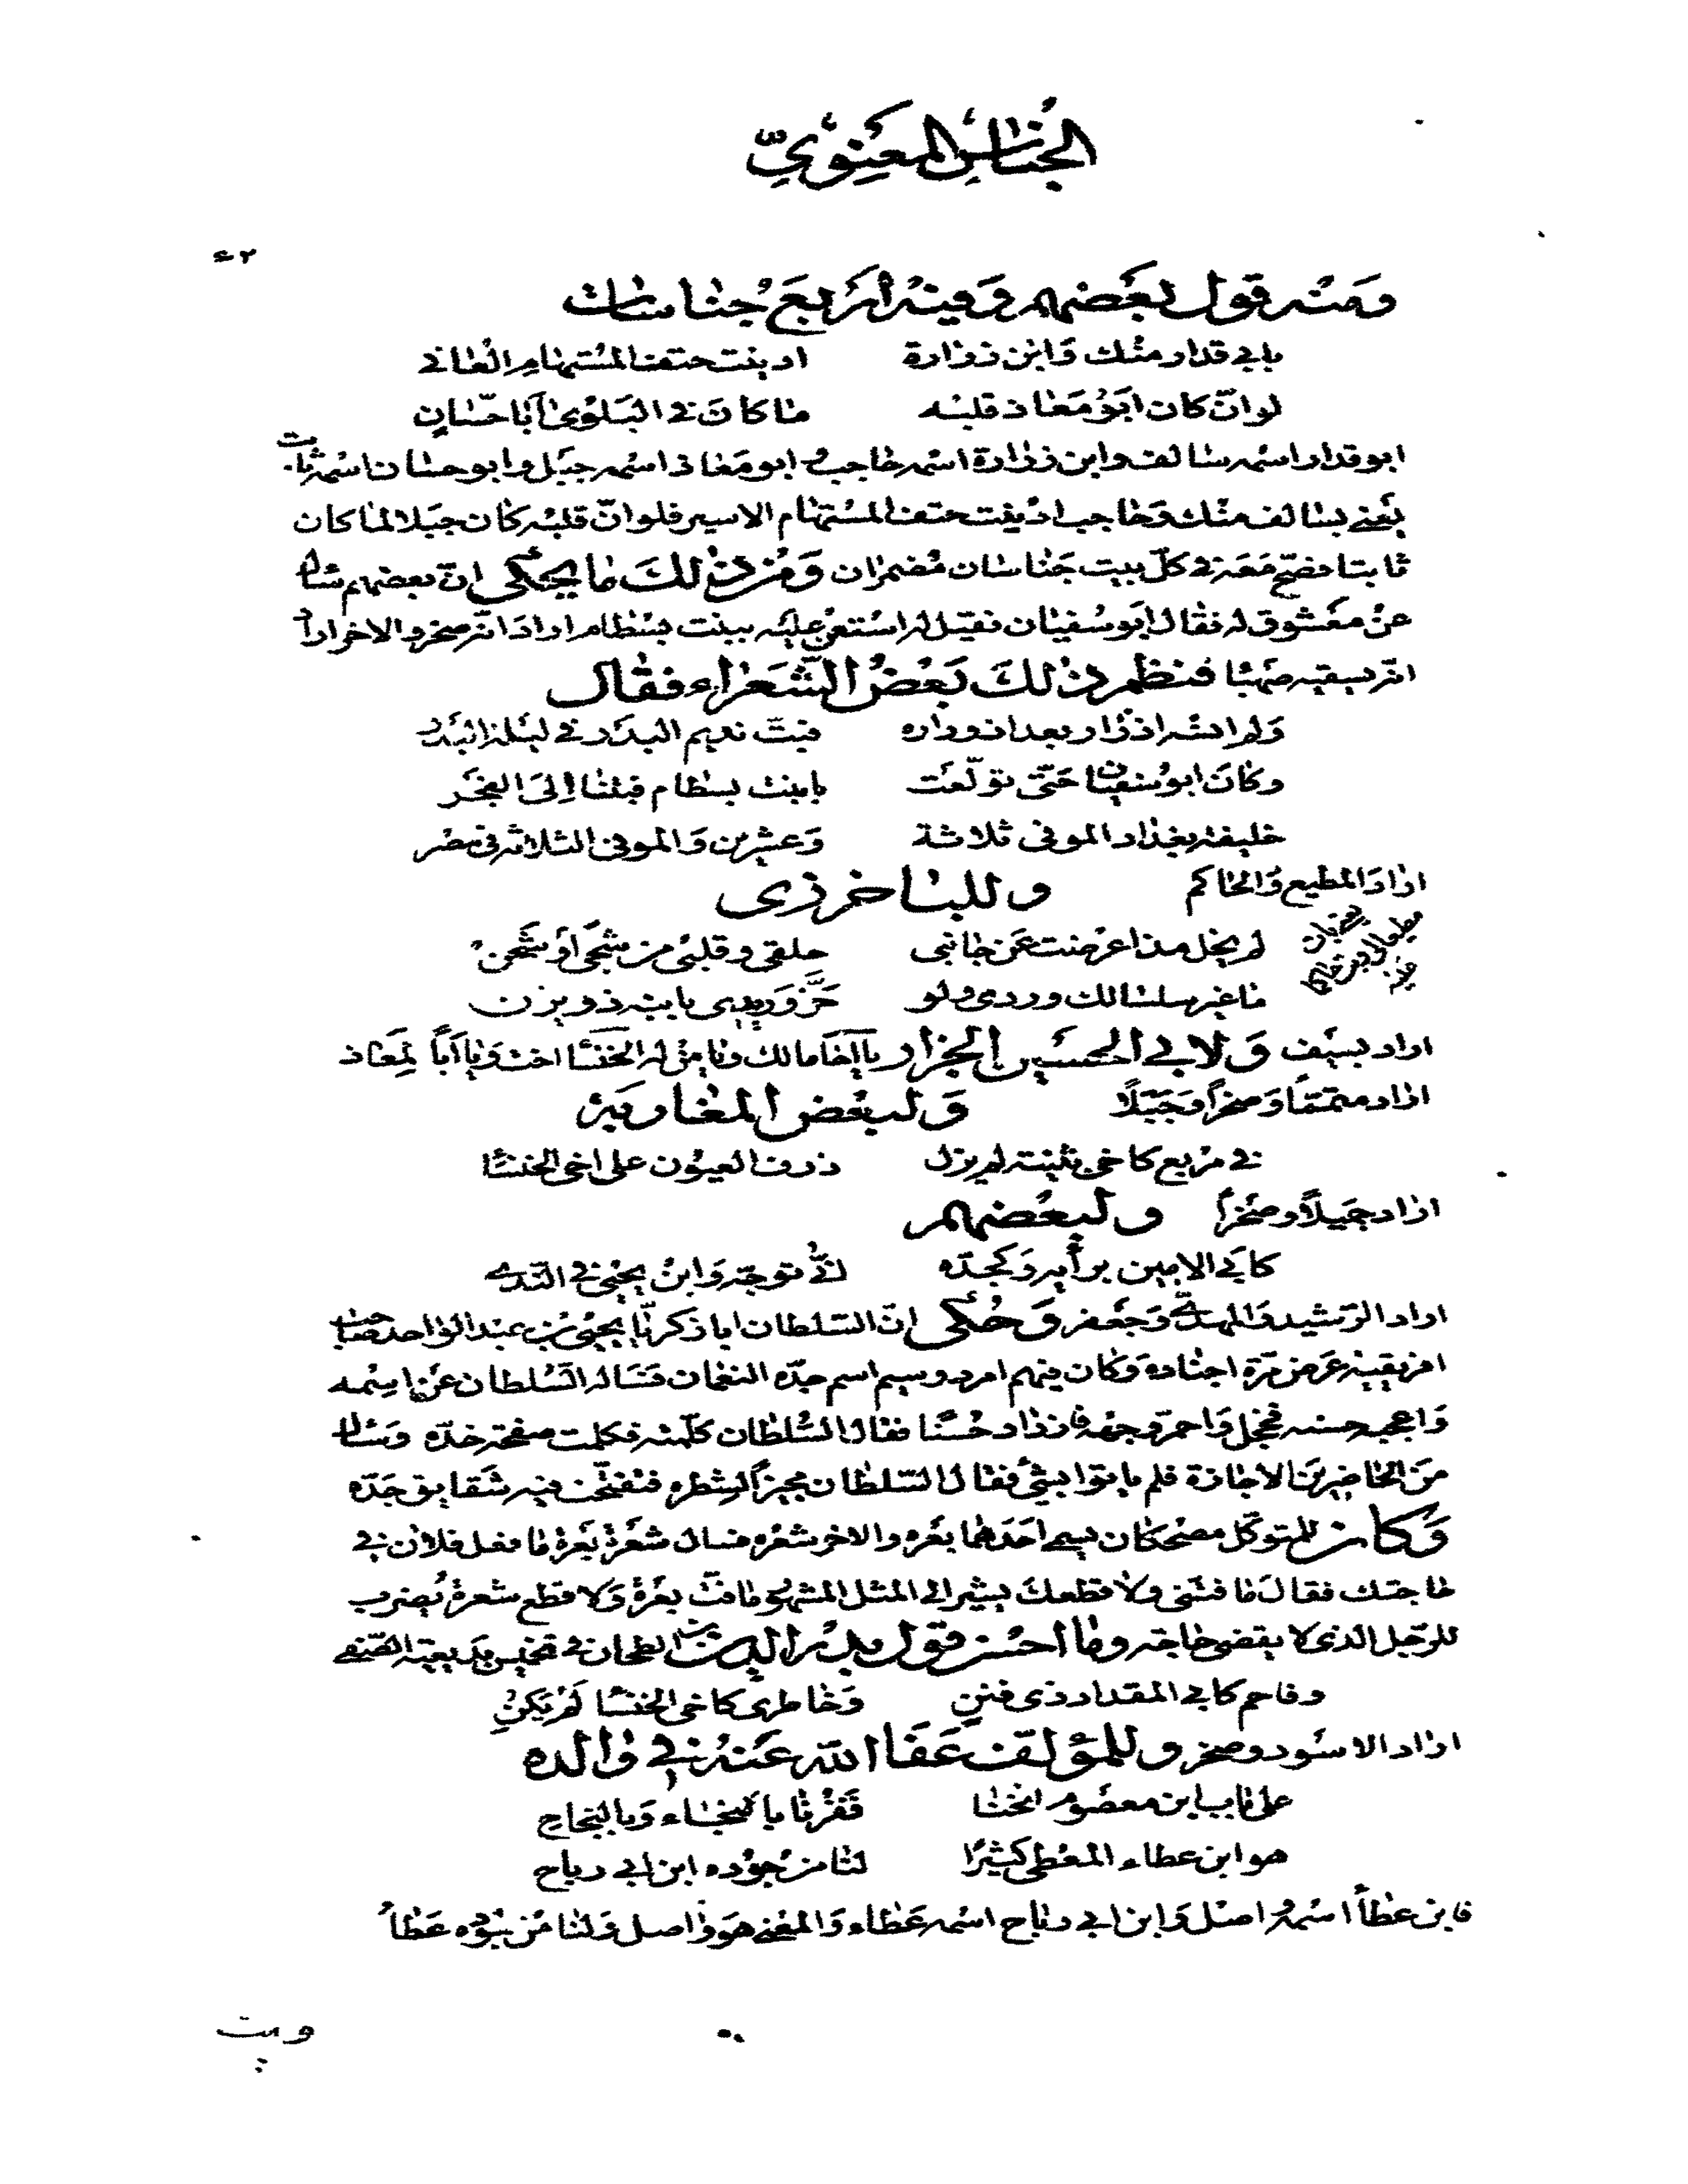 الجناس المعنوي
ومنه قول بعضهم وفيه اربع جناسات
بابي قدار منك وابن زرارة اد ينت حتفا المستهام العاني
لو انّ كان ابو معاذ قلبه ما كان في البلوى ابا حسّان
ابو قدار اسمه سالف وابن زرارة اسمه حاجب وابو معاذ اسمه جبل وابو حسان اسمه ثابت
يعني بسالف منك وحاجب ادينت حتفا المستهام الاسير فلو انّ قلبه كان جبلا لما كان
ثابتا فصح معه في كلّ بيت جناسان مضمران ومن ذلك ما يحكى انّ بعضهم سال
عن معشوق له فقال ابو سفيان فقيل له استعن عليه ببنت بسطام اراد انّه صخر والاخر اراد
انّه يسقيه صهبا فنظم ذلك بعض الشعراء فقال
ولم انسه اذ زار بعد ازوراره فبتّ نديم البدر في ليلة البدر
وكان ابو سفيان حتى تولّعت يا بنت بسطام فبتنا الى الفجر
خليفة بغداد الموفى ثلاثة وعشرين والموفى الثلاثة في مصر
اراد المطيع والحاكم وللباخرزي
لم يخل مذ اعرضت عن جانبي حلقي وقلبي من شجى او شجن
ما غير سلسالك وردي ولو حزّ وريدي يا ابنه ذو يزن
اراد بسيف ولابي الحسين الجزار يا اخا مالك ويا من له الخنسا اخت ويا ابا لمعاذ
اراد متمما وصخرا وجبلا ولبعض المغاربة
في مربع كاخي بثينة لم يزل ذرف العيون على اخي الخنسا
اراد جميلا وصخرا ولبعضهم
كابي الامين برأيه وكجدّه انّى توجّه وابن يحيى في الندى
اراد الرّشيد والمهديّ وجعفر وحكي انّ السلطان ابا زكريّا يحيى بن عبد الواحد صاحب
افريقية عرض مرّة اجناده وكان فيهم امرد وسيم اسم جدّه النعمان فساله السّلطان عن اسمه
واعجبه حسنه فخجل واحمرّ وجهه فازداد حسنا فقال السّلطان كلّمته فكلمت صفحة خدّه وسال
من الحاضرين الاجازة فلم ياتوا بشئ فقال السّلطان مجيزا لشطره فتفتّحت فيه شقايق جدّه
وكان للمتوكّل مضحكان يسمى احدهما بعره والاخر شعره فسال شعرة بعرة ما فعل فلان في
حاجتك فقال ما فتّني ولا قطعك يشير الى المثل المشهور ما فتّ بعرة ولا قطع شعرة يضرب
للرّجل الذى لا يقضي حاجة وما احسن قول بدر الدين الطحان في تخميس بديعية الصّفي
وفاحم كابي المقداد ذى فنن وخاطرى كاخي الخنسا لم يكن
اراد الاسود وصخر وللمؤلف عفا الله عنه في والده
على باب ابن معصوم انخنا ففزنا بالنجاء وبالنجاح
هو ابن عطاء المعطي كثيرا لنا من جوده ابن ابي رباح
فابن عطأ اسمه واصل وابن ابي رباح اسمه عطاء والمعنى هو واصل ولنا من جوده عطأ
وبيت